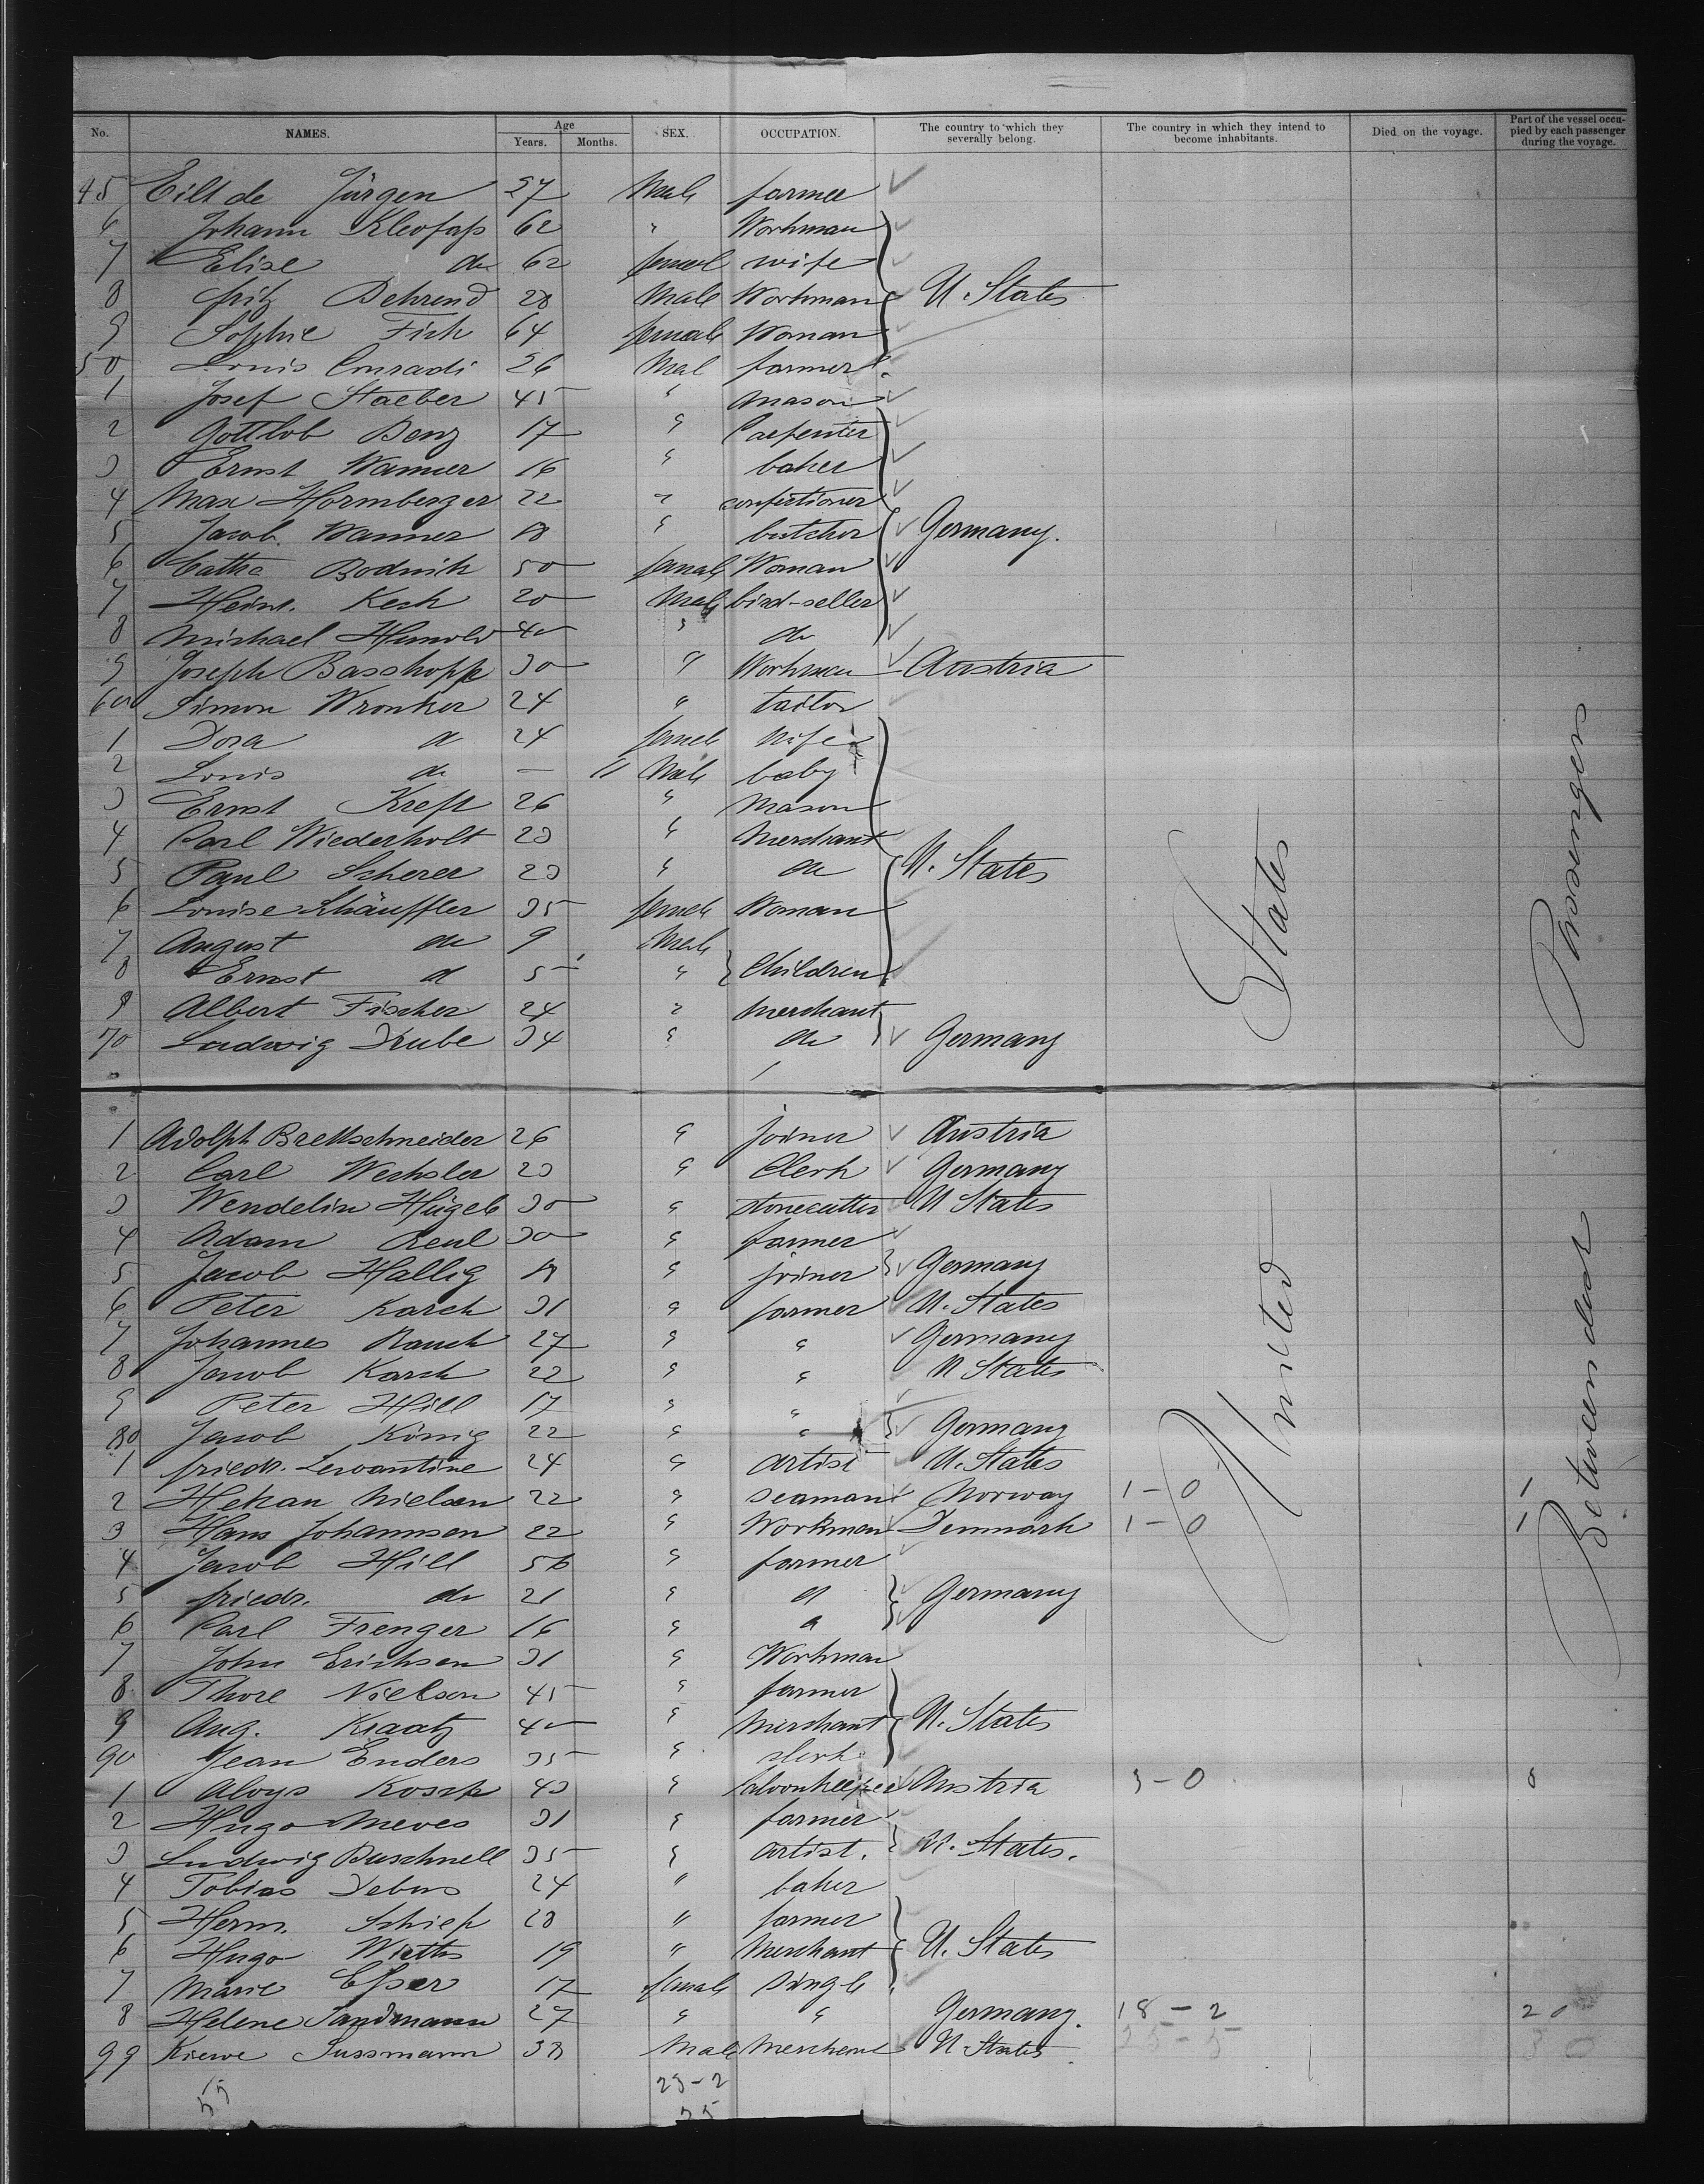 No. NAMES. Age Years. Months. SEX. OCCUPATION. The country to which they severally belong. The country in which they intend to become inhabitants. Died on the voyage. Part of the vessel occupied by each passenger during the voyage.
45 Eilt de Jürgen 27 Male farmer
6 Johann Kleofass 62 " Workman
7 Elise do 62 female wife
8 fritz Behrend 28 Male Workman U. States
9 Sophie Fick 64 female Woman
50 Louis Conradi 26 Mal farmer
1 Josef Staeber 45 " mason
2 Gottlob Benz 17 " Carpenter
3 Ernst Wanner 16 " baker
4 Max Hormberger 22 " confectioner
5 Jacob Wanner 18 " butcher Germany.
6 Cathe Rodnick 50 female Woman
7 Heinr. Keck 20 Male bird-seller
8 Michael Hunold 40 " do
9 Joseph Basshoppe 30 " Workman Austria
60 Simon Wronker 24 " tailor
1 Dora do 24 female wife
2 Louis do — 11 Male baby
3 Ernst Kreft 26 " Mason
4 Carl Wiederholt 23 " Merchant
5 Paul Scherer 23 " do U. States
6 Louise Schäuffler 35 female Woman
7 August do 9 Male
8 Ernst d 5 " Children
9 Albert Fischer 24 " merchant
70 Ludwig Drube 34 " do Germany
1 Adolph Brettschneider 26 " joiner Austria
2 Carl Wechsler 23 " Clerk Germany
3 Wendelin Hügele 30 " stonecutter U States
4 Adam Reul 30 " farmer
5 Jacob Hallig 18 " joiner Germany
6 Peter Karch 31 " farmer U. States
7 Johannes Rauch 27 " " Germany
8 Jacob Karch 22 " " U States
9 Peter Hill 17 " "
80 Jacob König 22 " " Germany
1 friedr. Lewantine 24 " artist U. States
2 Hekan Nielsen 22 " seaman Norway 1 - 0 1
3 Hans Johannsen 22 " Workman Denmark 1 - 0 1
4 Jacob Hill 56 " farmer
5 friedr. do 21 " " Germany
6 Carl Frenger 16 " "
7 John Erichsen 31 " Workman
8 Thore Nielsen 45 " farmer
9 Aug. Kraatz 40 " Merchant U. States
90 Jean Enders 35 " clerk
1 Aloys Kosch 43 " saloonkeeper Austria
2 Hugo Meves 31 " farmer
3 Ludwig Buschnell 35 " artist. U. States.
4 Tobias Debus 24 " baker
5 Herm. Schief 28 " farmer
6 Hugo 19 " Merchant U. States
7 Marie Esser 17 female single
8 Helene Sandmann 27 " " Germany. 18 - 2 20
99 Kiewe Sussmann 38 Male Merchant U. States 25 - 5 30
55 23-2
25
United States
Between deck Passengers